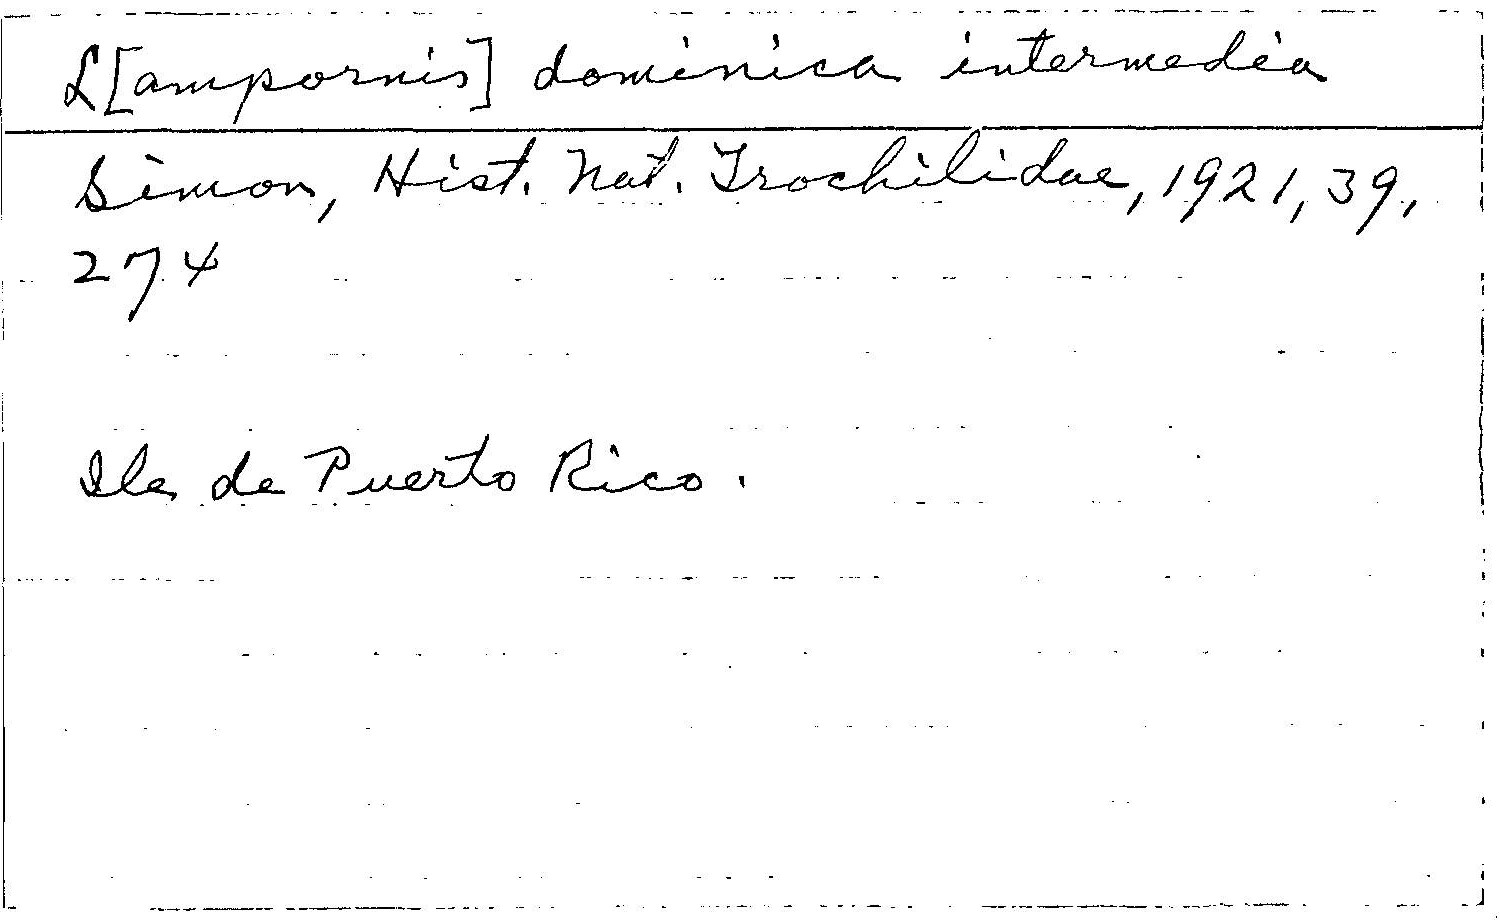 L[ampornis] dominica intermedia
Simon, Hist. Nat. Trochilidae, 1921, 39,
274
Ile de Puerto Rico.